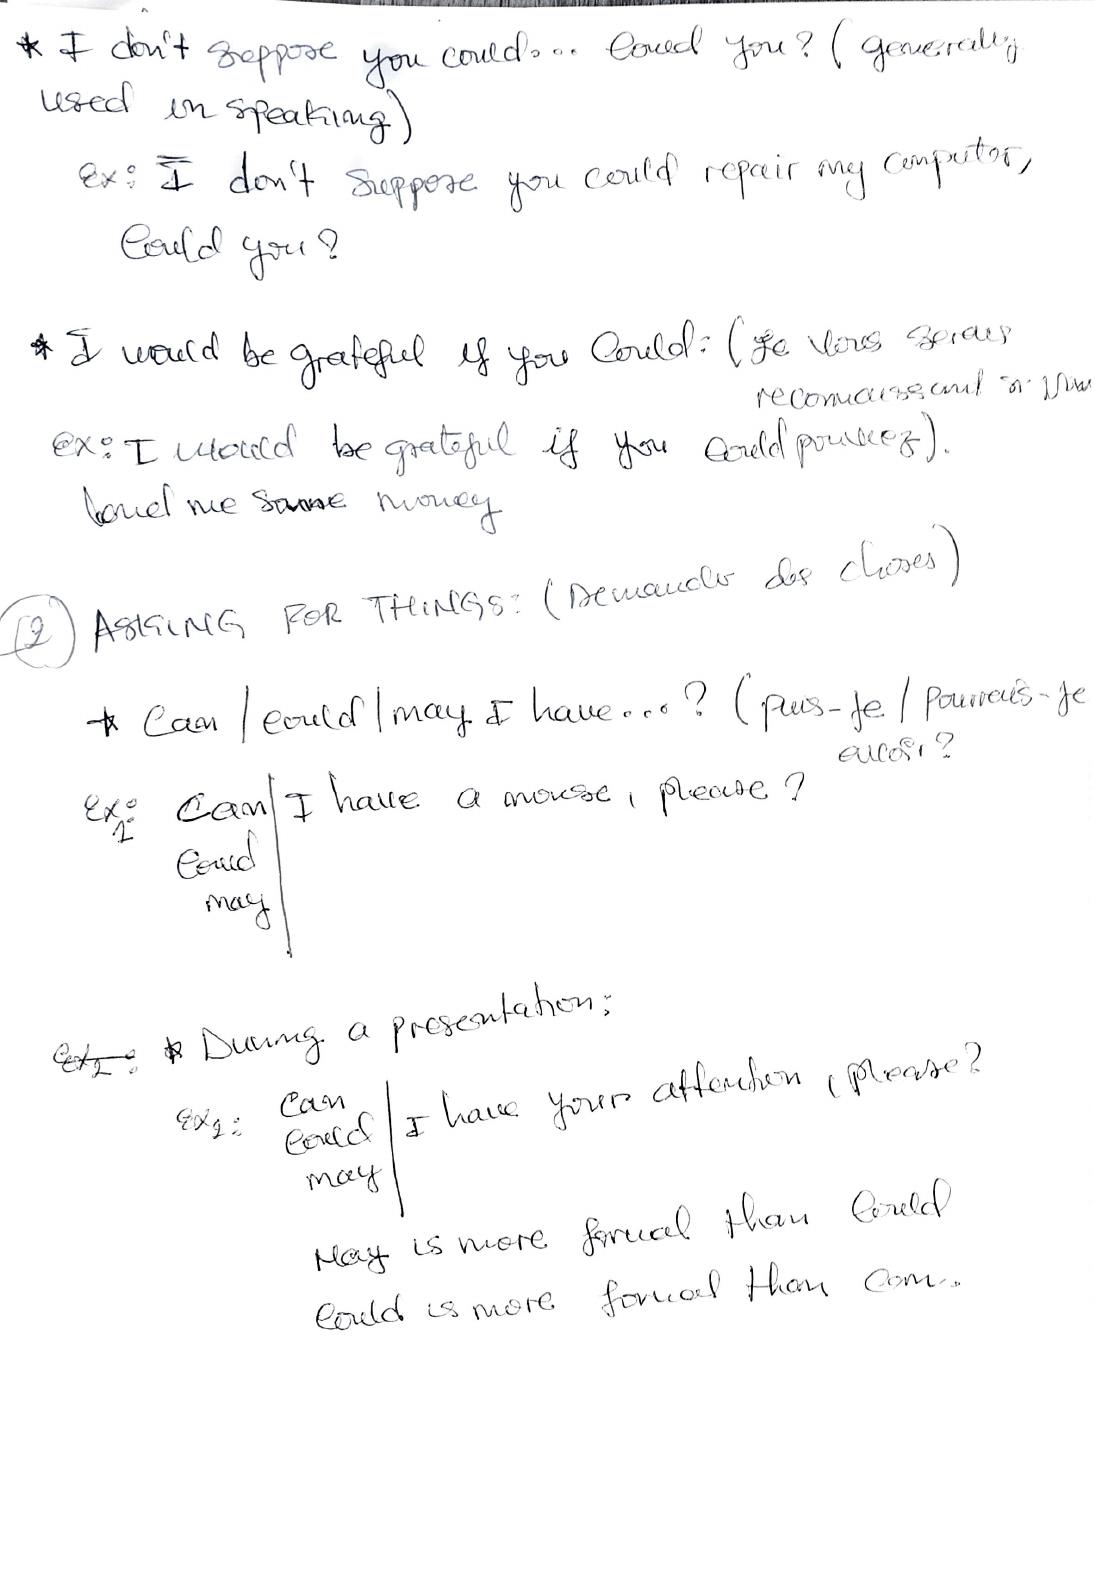 * I don't suppose you could... Could you? (generally
used in speaking)
ex: I don't suppose you could repair my computer,
Could you?
* I would be grateful if you Could: (Je vous serais
reconnaissant si vous
ex: I would be grateful if you could pouviez).
lend me some money
2) ASKING FOR THINGS: (Demander des choses)
* Can / could / may I have...? (puis-je / Pourrais-je
avoir?
ex1: Can I have a mouse, please?
Could
may
ex2: * During a presentation:
ex2: Can
Could I have your attention, please?
may
May is more formal than Could
Could is more formal than can..